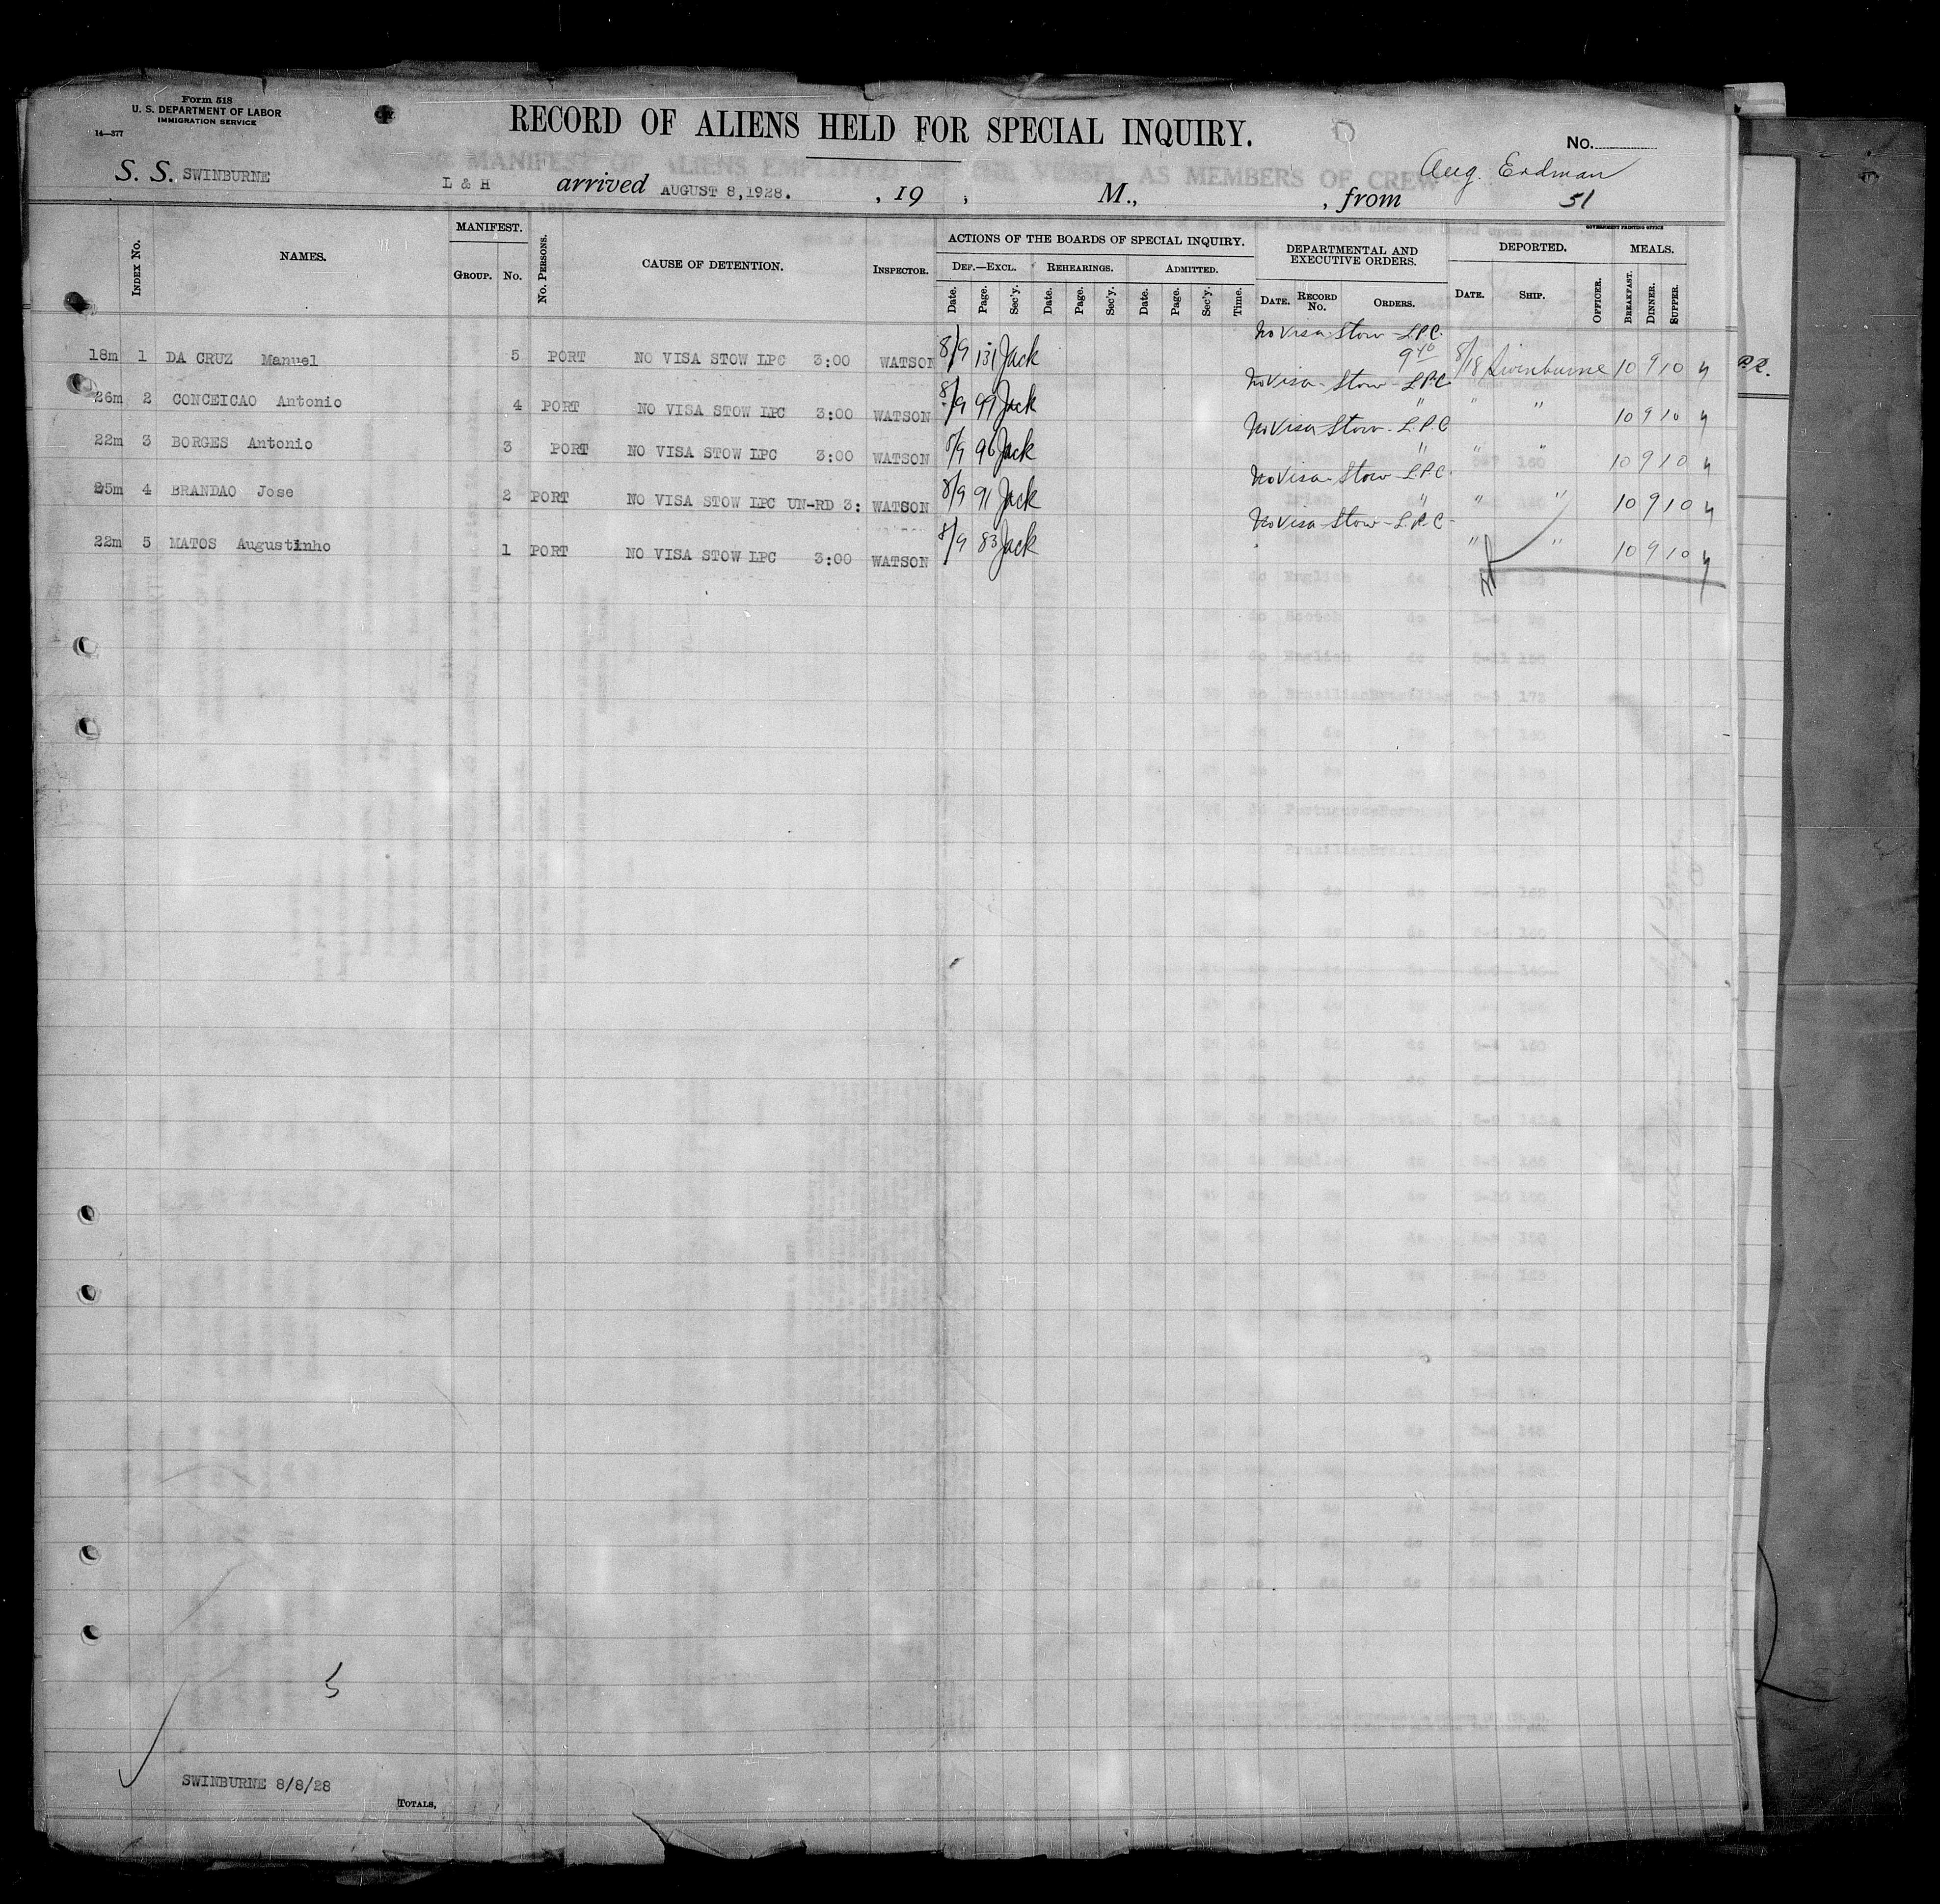 Form 518
U. S. DEPARTMENT OF LABOR
IMMIGRATION SERVICE
14—377
RECORD OF ALIENS HELD FOR SPECIAL INQUIRY.
No.
S. S. SWINBURNE L & H arrived AUGUST 8,1928. , 19 , M., , from Aug. Erdman
51
GOVERNMENT PRINTING OFFICE
INDEX NO. NAMES. MANIFEST. GROUP. NO. NO. PERSONS. CAUSE OF DETENTION. INSPECTOR. ACTIONS OF THE BOARDS OF SPECIAL INQUIRY. DEPARTMENTAL AND EXECUTIVE ORDERS. DEPORTED. MEALS.
DEF.—EXCL. REHEARINGS. ADMITTED.
Date. Page. Sec'y. Date. Page. Sec'y. Date. Page. Sec'y. Time. DATE. RECORD NO. ORDERS. DATE. SHIP. OFFICER. BREAKFAST. DINNER. SUPPER.
No Visa-Stow-LPC
18m 1 DA CRUZ Manuel 5 PORT NO VISA STOW LPC 3:00 WATSON 8/9 131 Jack 9 40 8/18 Swinburne 10 9 10 y P.R.
No Visa-Stow-LPC
26m 2 CONCEICAO Antonio 4 PORT NO VISA STOW LPC 3:00 WATSON 8/9 99 Jack " " " 10 9 10 y
No Visa Stow-L.P.C
22m 3 BORGES Antonio 3 PORT NO VISA STOW LPC 3:00 WATSON 8/9 96 Jack " " " 10 9 10 y
No Visa-Stow-LPC
25m 4 BRANDAO Jose 2 PORT NO VISA STOW LPC UN-RD 3: WATSON 8/9 91 Jack " " " 10 9 10 y
No Visa-Stow-L.P.C-
22m 5 MATOS Augustinho 1 PORT NO VISA STOW LPC 3:00 WATSON 8/9 83 Jack " " 10 9 10 y
5
SWINBURNE 8/8/28
TOTALS,